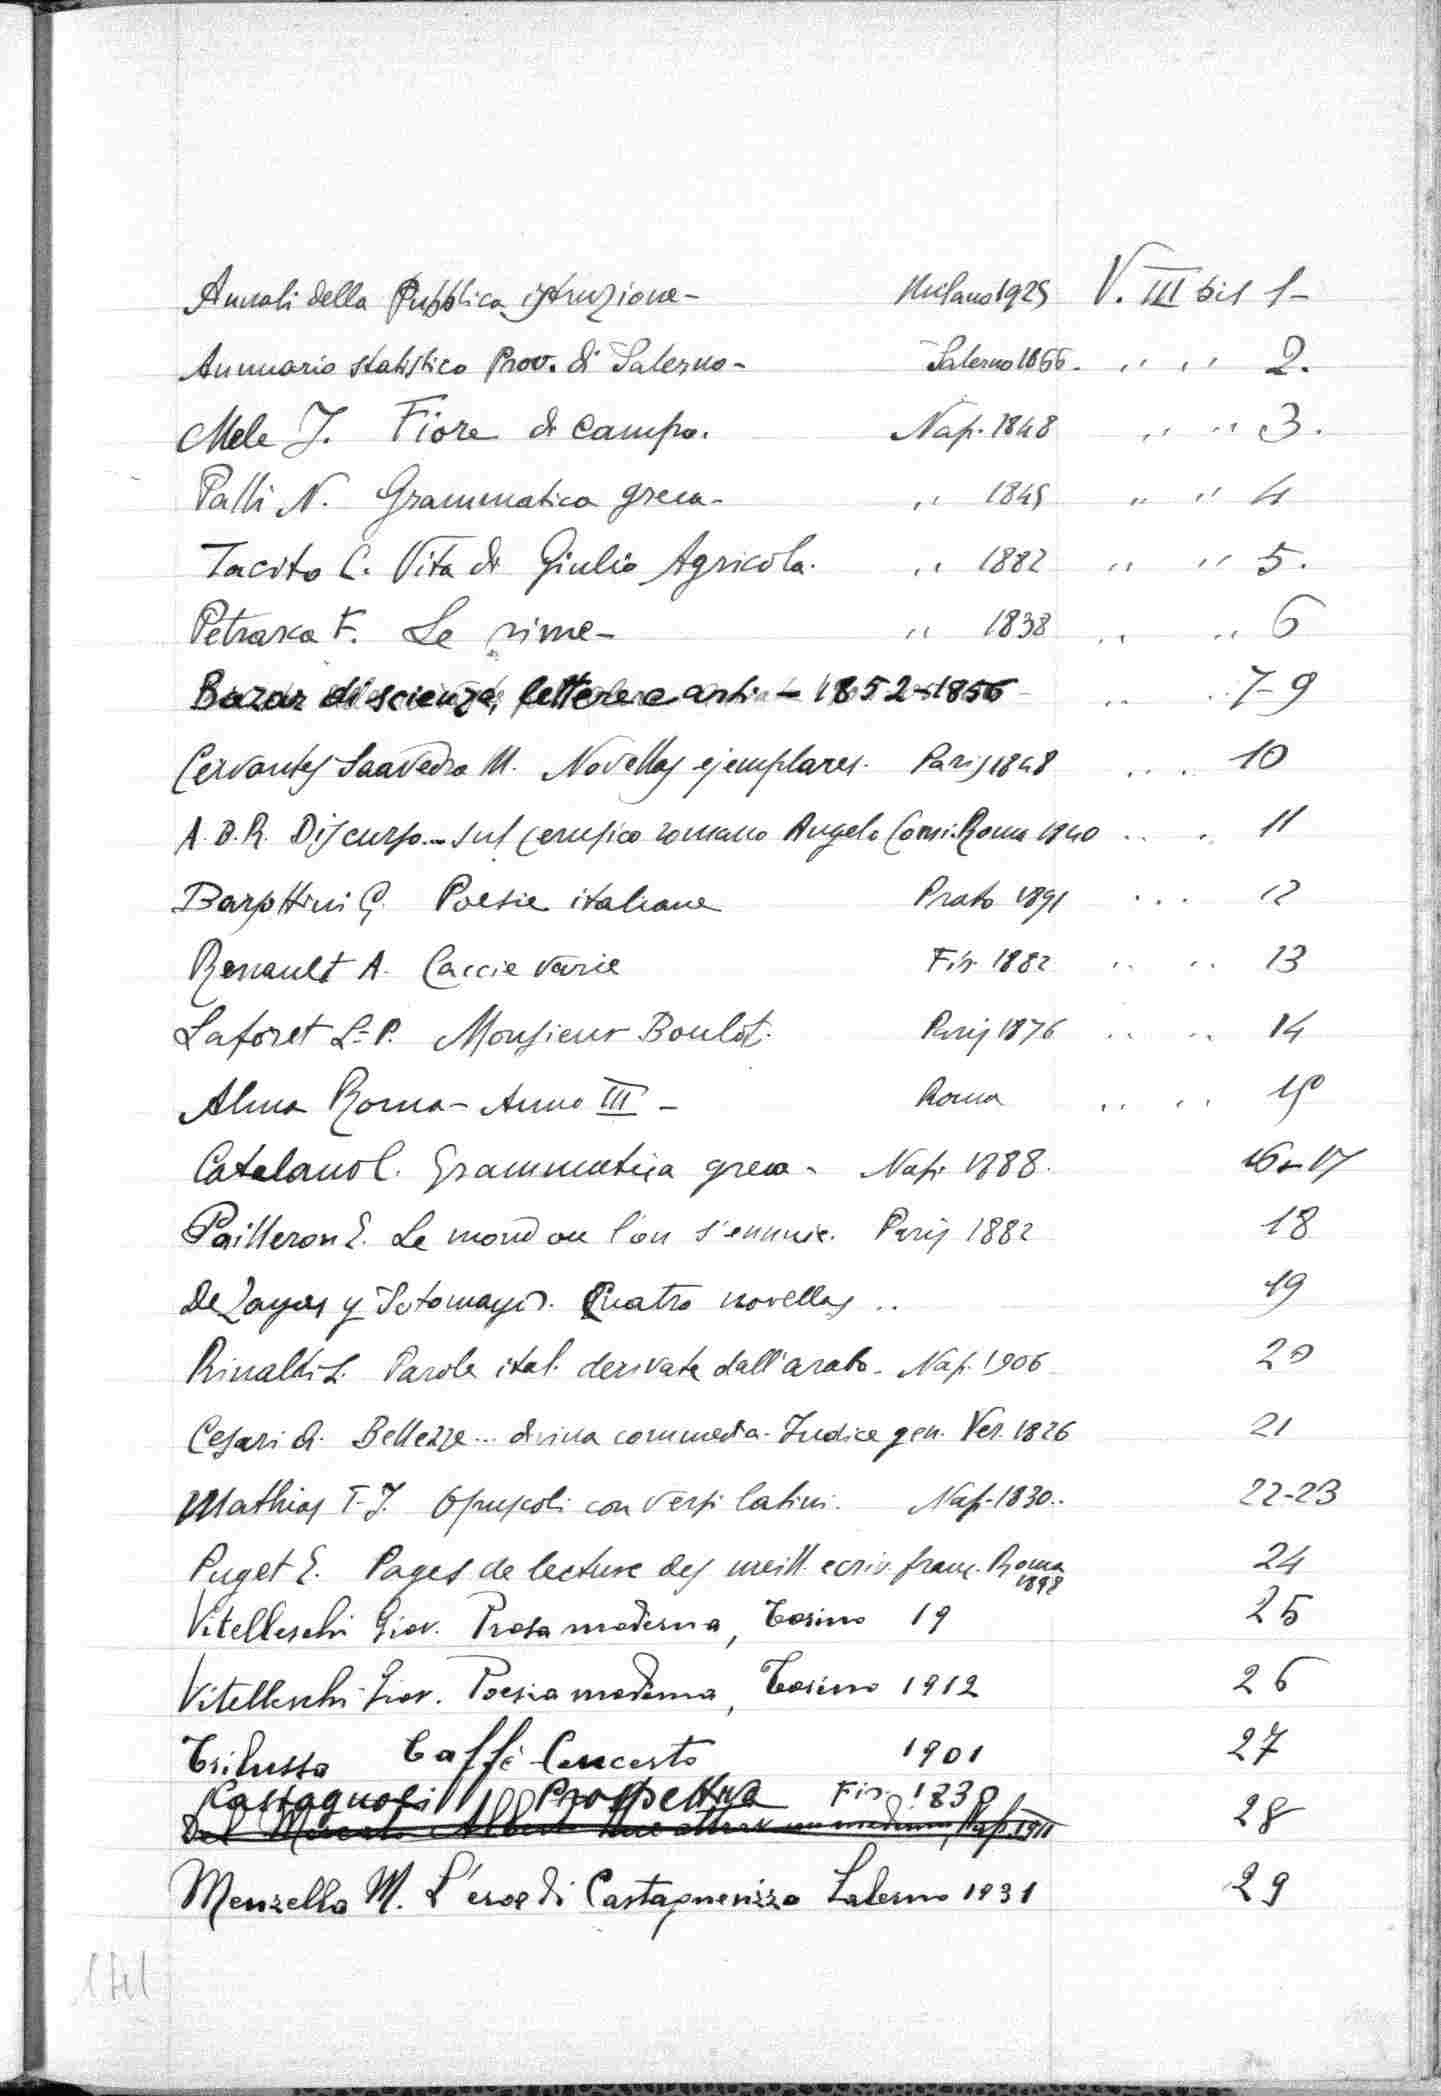 Annali della Pubblica istruzione - Milano 1925 V. III bis 1 -
Annuario statistico Prov. di Salerno - Salerno 1866. " " 2.
Mele J. Fiore di campo. Nap. 1848 " " 3.
Palli N. Grammatica greca - " 1845 " " 4
Tacito C. Vita di Giulio Agricola. " 1882 " " 5.
Petrarca F. Le rime - " 1838 " " 6
Bazar di scienze, lettere e arti - 1852-1856 " " 7-9
Cervantes Saavedra M. Novellas ejemplares. Paris 1848 " " 10
A. D. R. Discurso... sul cerusico romano Angelo Comi. Roma 1840 " " 11
Barsottini G. Poesie italiane Prato 1891 " " 12
Renault A. Caccie varie Fir. 1882 " " 13
Laforet L.-P. Monsieur Boulot. Paris 1876 " " 14
Alma Roma - Anno III - Roma " " 15
Catalano C. Grammatica greca - Nap. 1888. 16-17
Pailleron E. Le mond ou l'on s'ennuie. Paris 1882 18
De Zayas y Sotomayor. Quatro novellas .. 19
Rinaldi L. Parole ital. derivate dall'arabo - Nap. 1906 20
Cesari A. Bellezze... divina commedia - Indice gen. Ver. 1826 21
Mathias T-J. Opuscoli con versi latini. Nap. 1830.. 22-23
Puget E. Pages de lecture des meill. ecriv. franç. Roma 1898 24
Vitelleschi Giov. Prosa moderna, Torino 19 25
Vitelleschi Giov. Poesia moderna, Torino 1912 26
Trilussa Caffè Concerto 1901 27
Castagnoli Prospettiva Fir. 1830
Del Alberto Nap. 1911 28
Menzella M. L'eroe di Castagnenizza Salerno 1931 29